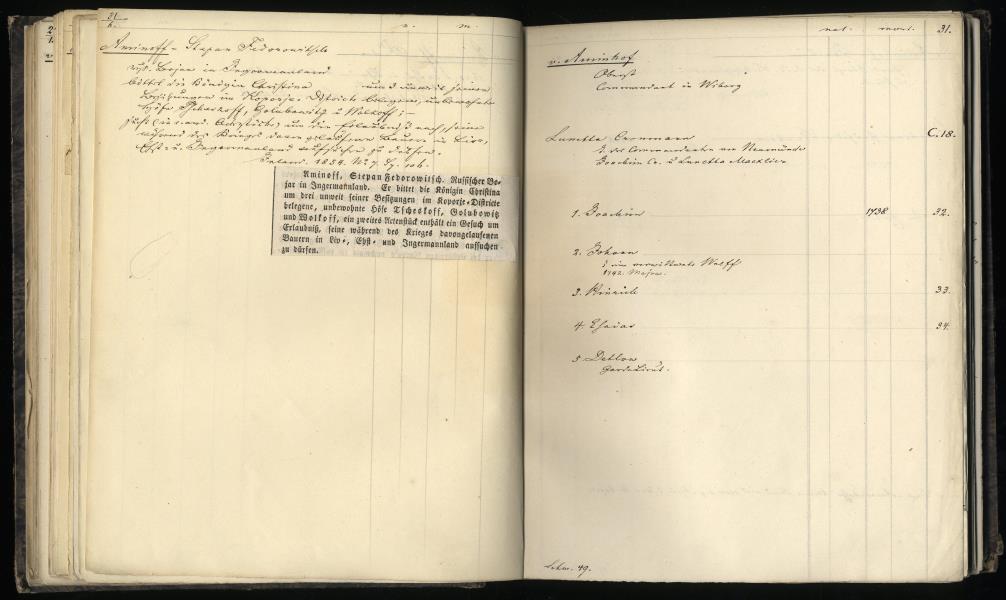 31
n. m.
Aminoff - Stepan Fedorowitsch
russ. Bojar in Ingermannland
bittet die Königin Christina um 3 unweit seiner
Besitzungen im Koporje-District belegene, unbewohnte
Höfe Tscheskoff, Golubowitz u Wolkoff; —
um die Erlaubniß nach, seine
während des Kriegs davongelaufenen Bauern in Liv-,
Ehst- u. Ingermannland aufsuchen zu dürfen.
Inland. 1854. No 7.
Aminoff, Stepan Fedorowitsch. Russischer Bo-
jar in Ingermannland. Er bittet die Königin Christina
um drei unweit seiner Besitzungen im Koporje-Districte
belegene, unbewohnte Höfe Tscheskoff, Golubowitz
und Wolkoff, ein zweites Actenstück enthält ein Gesuch um
Erlaubniß, seine während des Krieges davongelaufenen
Bauern in Liv-, Ehst- und Ingermannland aufsuchen
zu dürfen.
nat. mort. 31.
v. Aminhof
Oberst
Commandant in Wiborg
Lunetta Cronmann C.18.
T. des Commandanten von Neumünde
Joachim Cr. u Lunetta Macklier
1. Joachim 1738 32.
2. Johann
verwittwete Wolff
1742. Major.
3. Hinrich 33.
4. Esaias 34.
5 Detlow
Garde Lieut.
49.